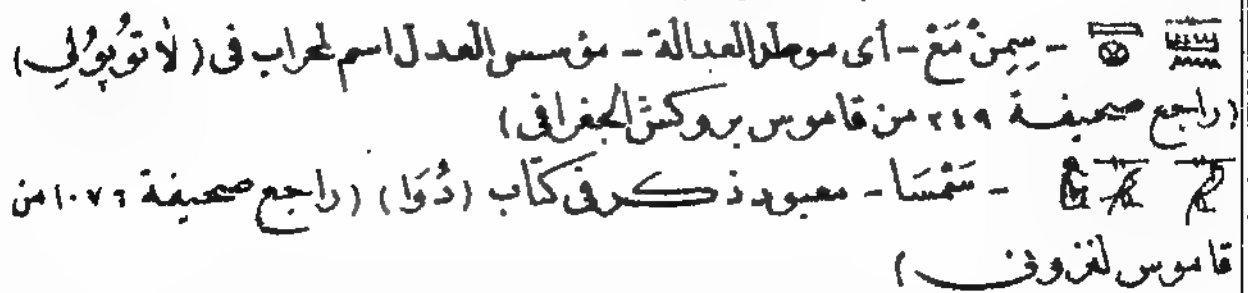 - سِمِنْ مَعْ - أى موطد العدالة - مؤسس العدل اسم لمحراب فى (لأَتُوپُولِي)
(راجع صحيفة ٢٤٩ من قاموس بروكش الجغرافى)
- سَمْسَا - معبود ذكر فى كتاب (دُوَا) (راجع صحيفة ١٠٧٦ من
قاموس لنزونى)